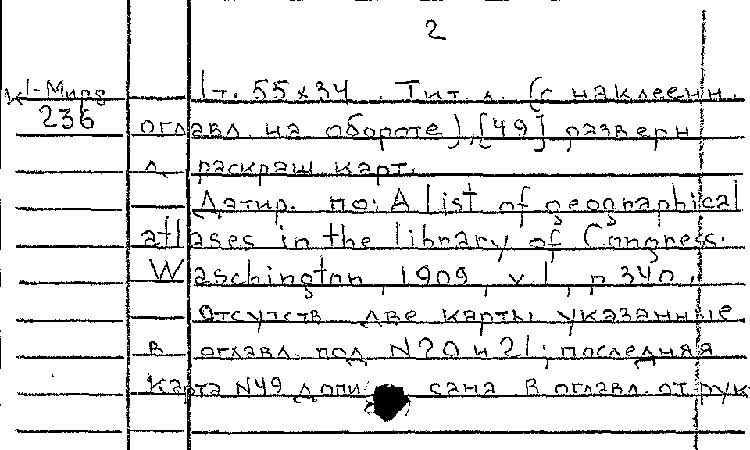 2
К1-Мира 1т. 55x34. Тит. л. (с наклеенн.
236 оглавл. на обороте), [49] разверн
л раскраш карт.
Датир. по: A list of geographical
atlases in the library of Congress.
Waschington, 1909, v.1, p.340.
Отсутств две карты указанные
в оглавл. под N20 и 21; последняя
карта N49 дописана в оглавл. от рук